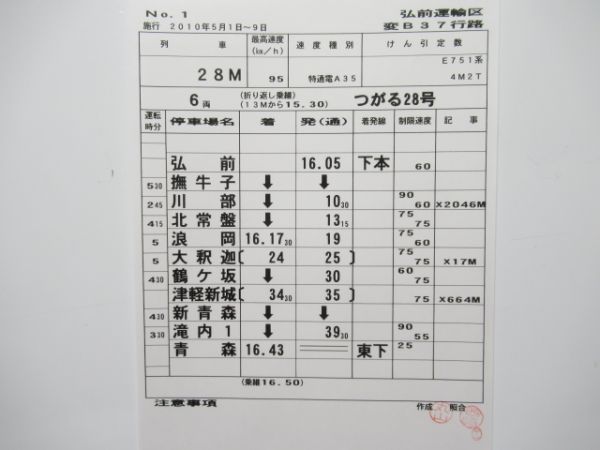 No. 1 弘前運輸区
施行 2010年5月1日～9日 変B37行路
列 車 最高速度(㎞/h) 速度種別 けん引定数
28M 95 特通電A35 E751系 4M2T
6両 (折り返し乗継) (13Mから15.30) つがる28号
運転時分 停車場名 着 発(通) 着発線 制限速度 記事
弘前 16.05 下本 60
撫牛子 ↓ ↓
5 30 川部 ↓ 10 30 90 60 X2046M
2 45 北常盤 ↓ 13 15 75 75
4 15 浪岡 16.17 30 19 75 60
5 大釈迦 [ 24 25 ] 75 75 X17M
5 鶴ケ坂 ↓ 30 60 75
4 30 津軽新城 [ 34 30 35 ] 75 X664M
新青森 ↓ ↓
4 30 滝内1 ↓ 39 30 90 55
3 30 青森 16.43 東下 25
(乗継16.50)
注意事項 作成 照合